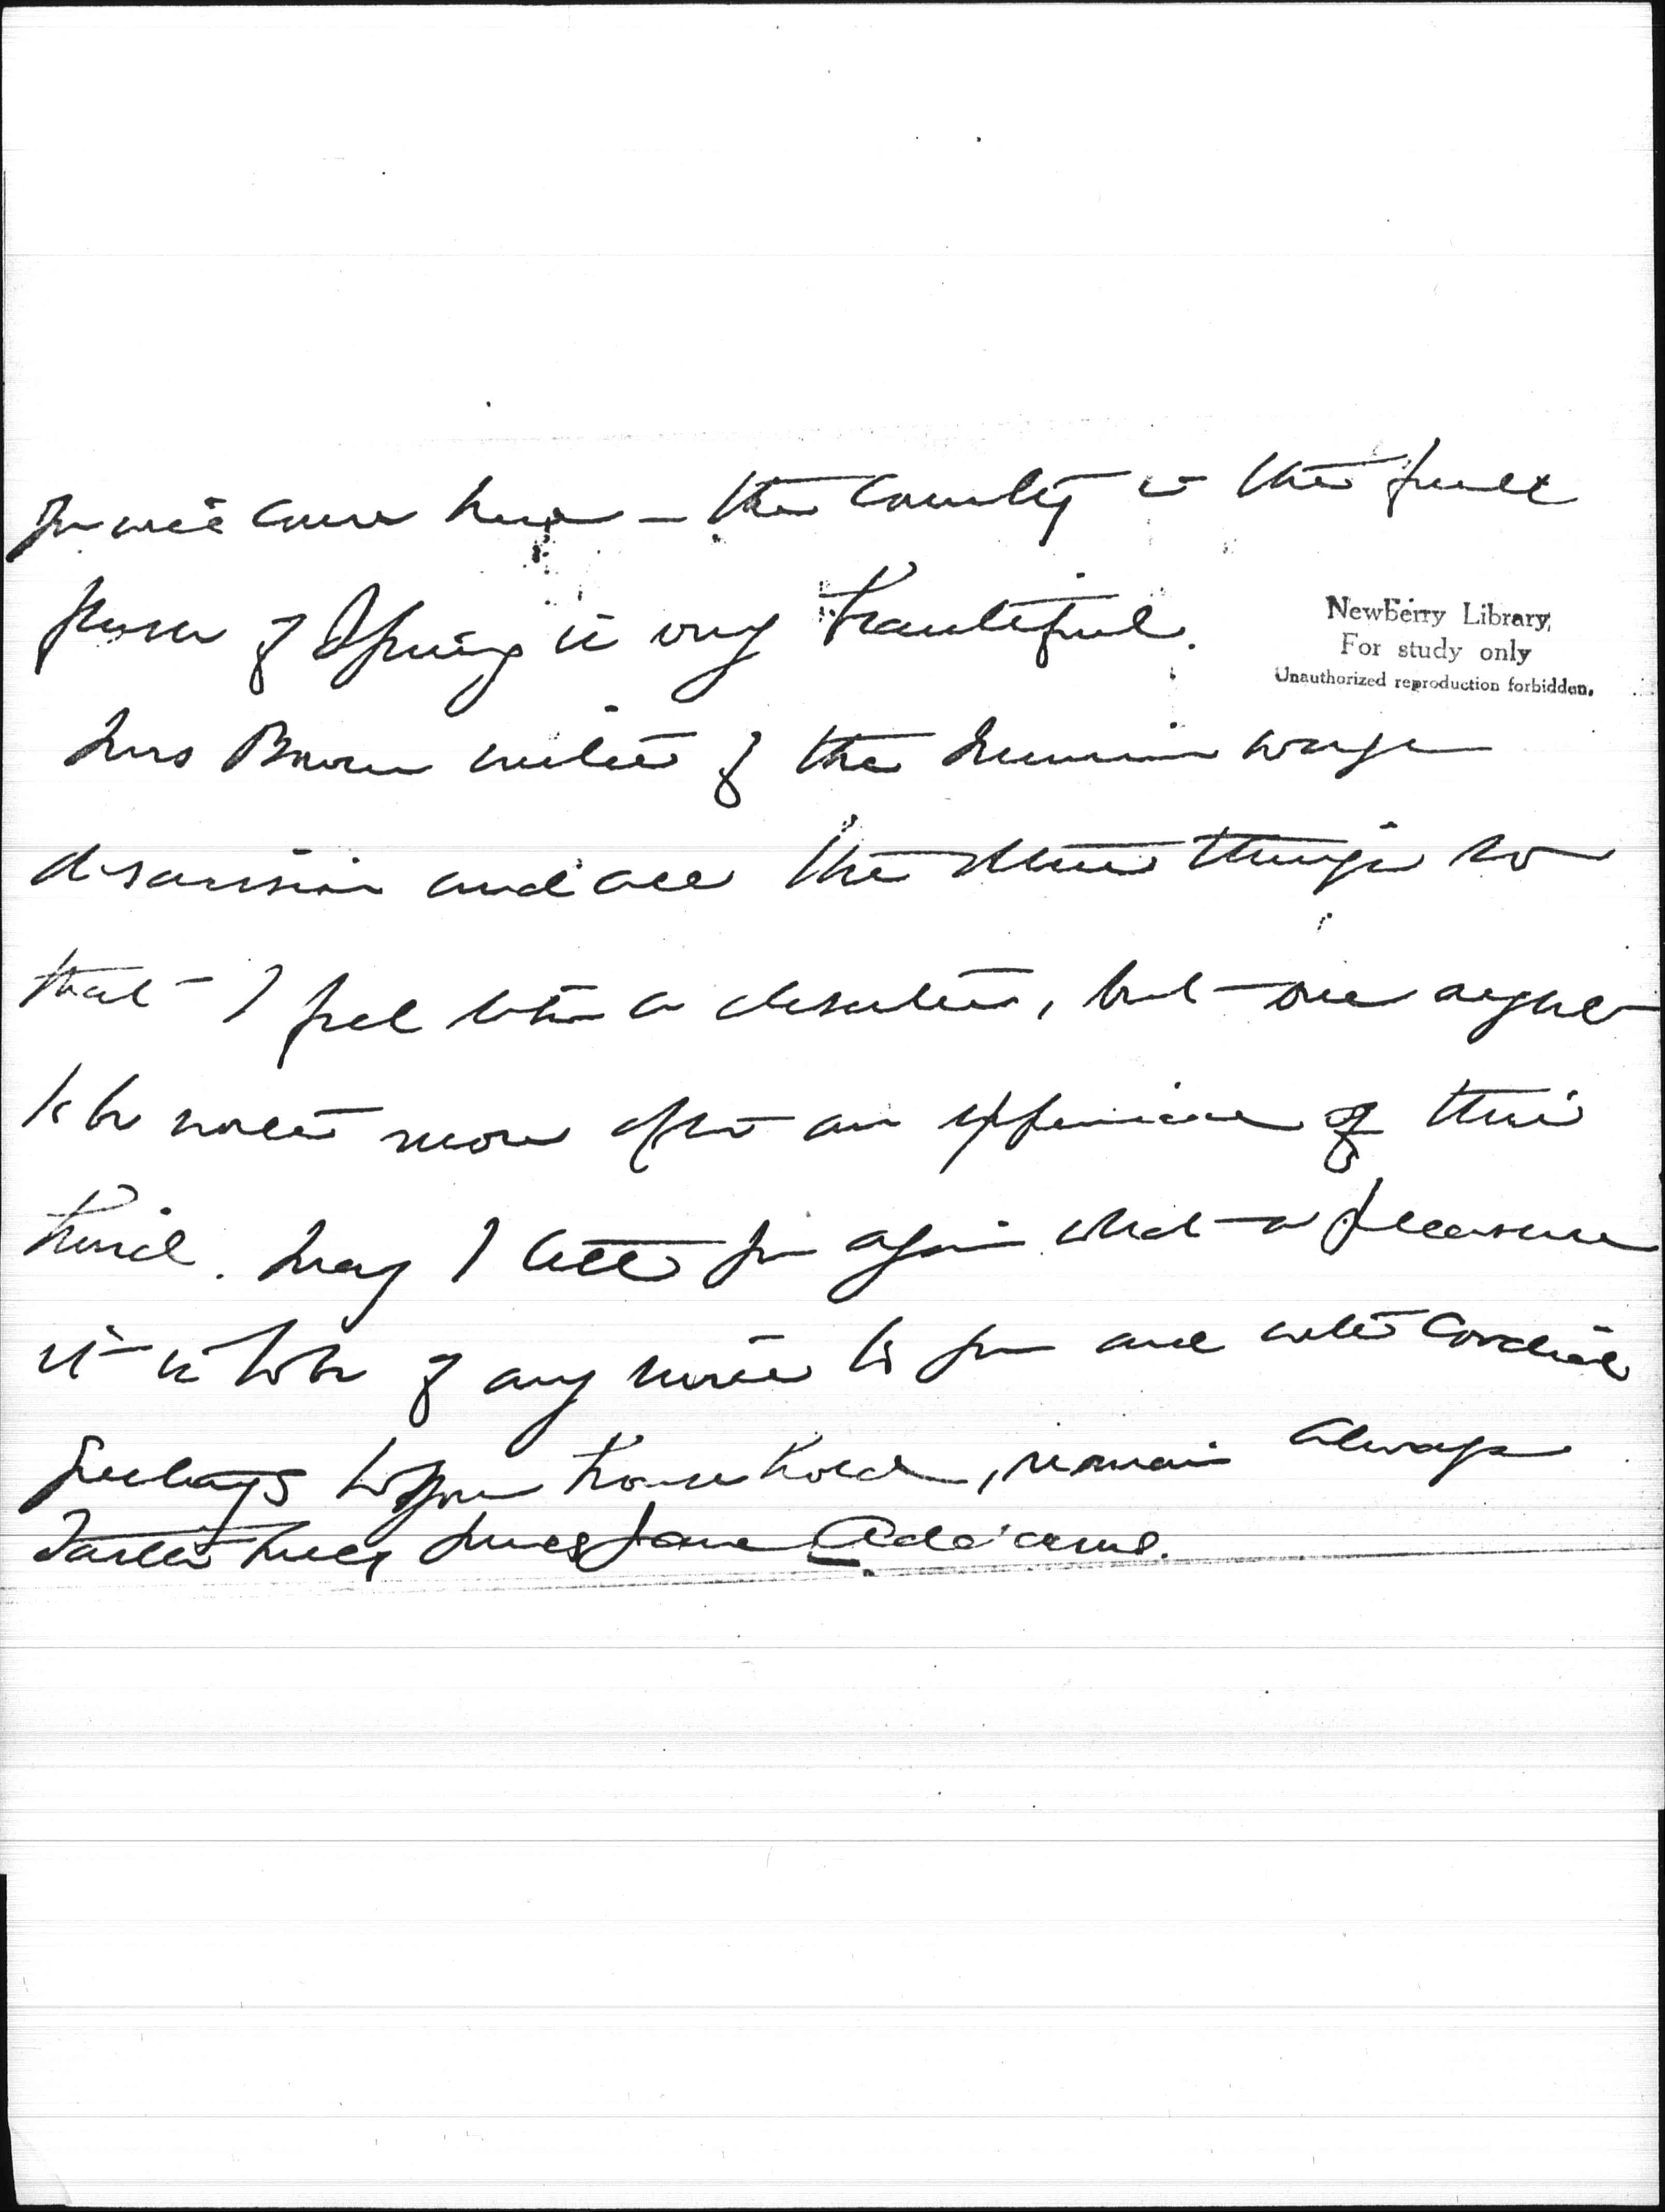 you will come here — the country in the first
flush of Spring is very beautiful.
Newberry Library
For study only
Unauthorized reproduction forbidden.
Mrs Bowen writes of the minimum wage
discussion and all the other things so
that I feel like a deserter, but one ought
to be worth more after an experience of this
kind. May I tell you again what a pleasure
it is to be of any service to you and with cordial
greetings to your household, remain always
faithfully yours Jane Addams.